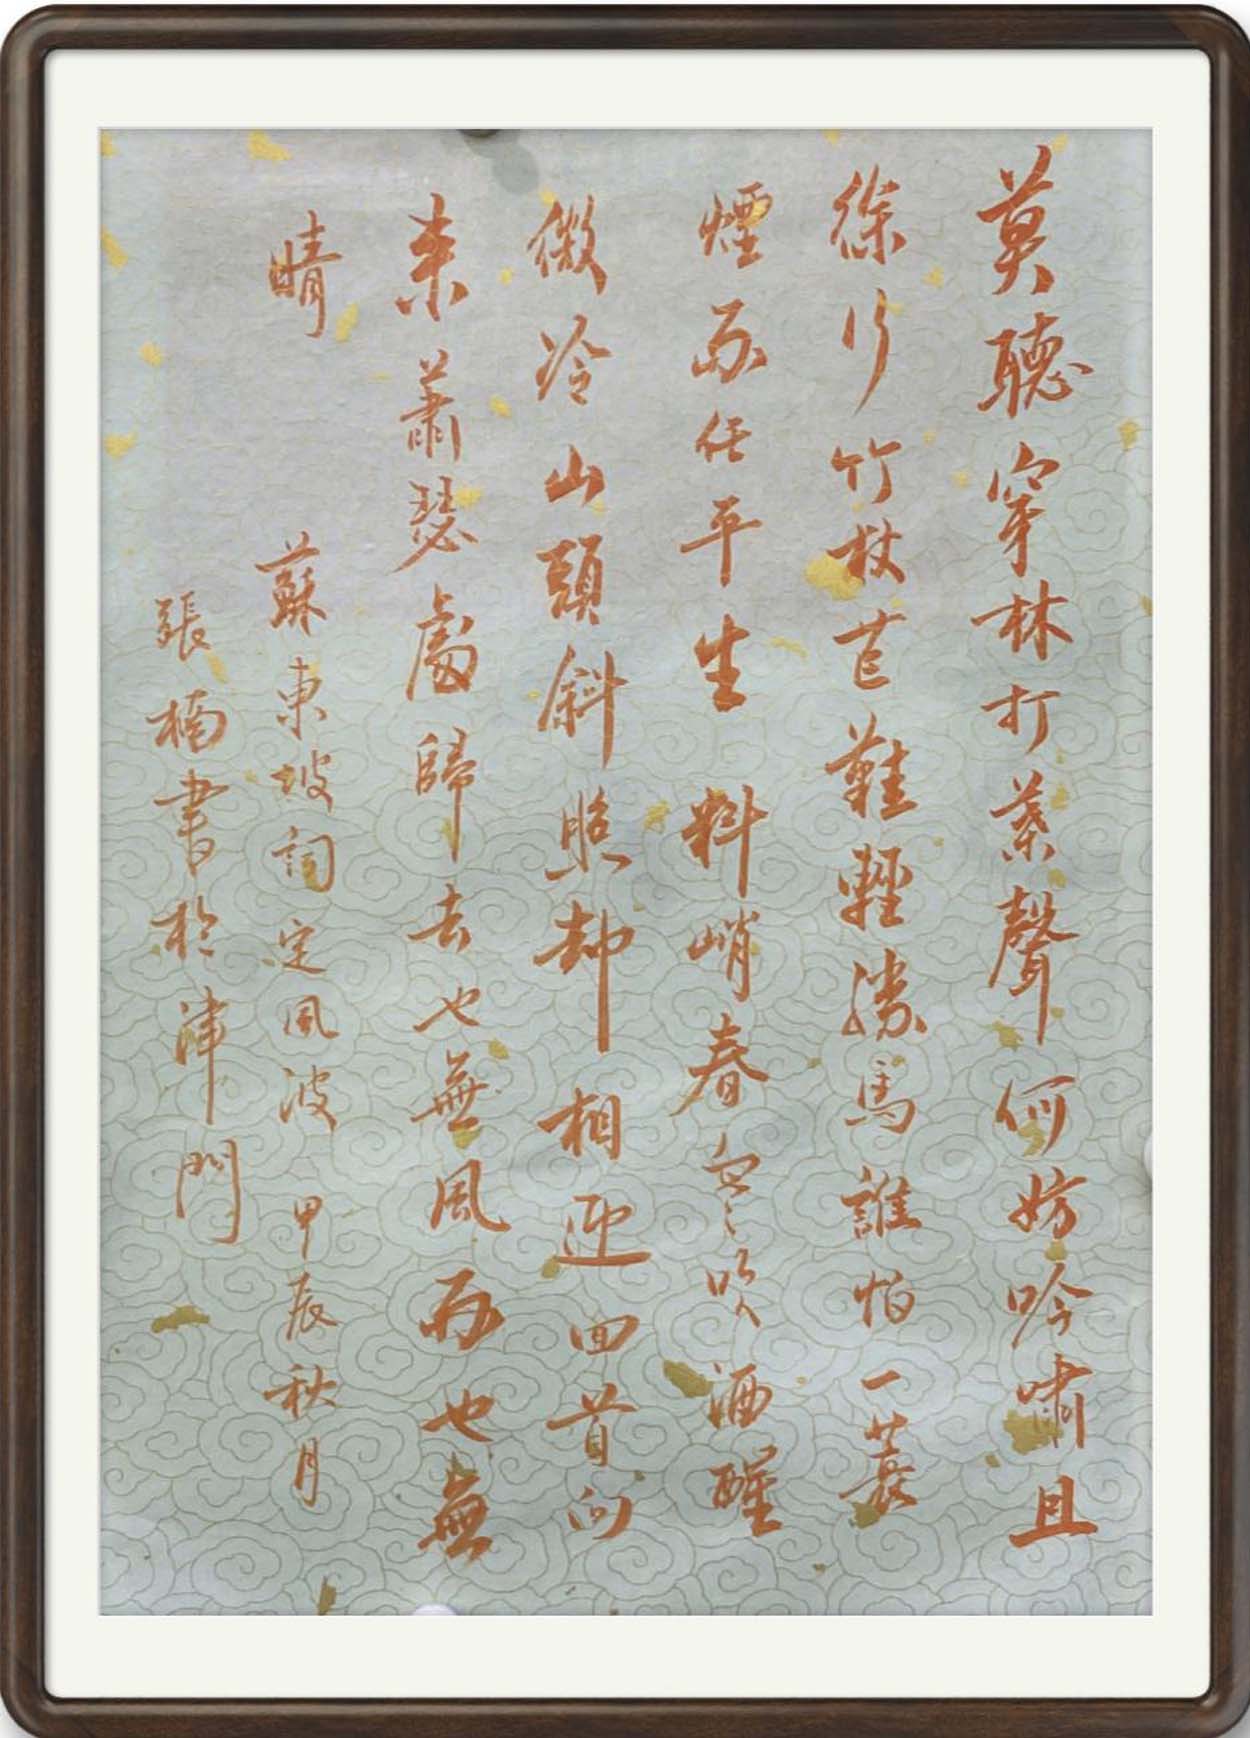 莫聽穿林打葉聲何妨吟嘯且
徐行竹杖芒鞋輕勝馬誰怕一蓑
煙雨任平生料峭春寒吹酒醒
微冷山頭斜照却相迎回首向
來蕭瑟處歸去也無風雨也無
晴
蘇東坡詞定風波甲辰秋月
張楠書於津門